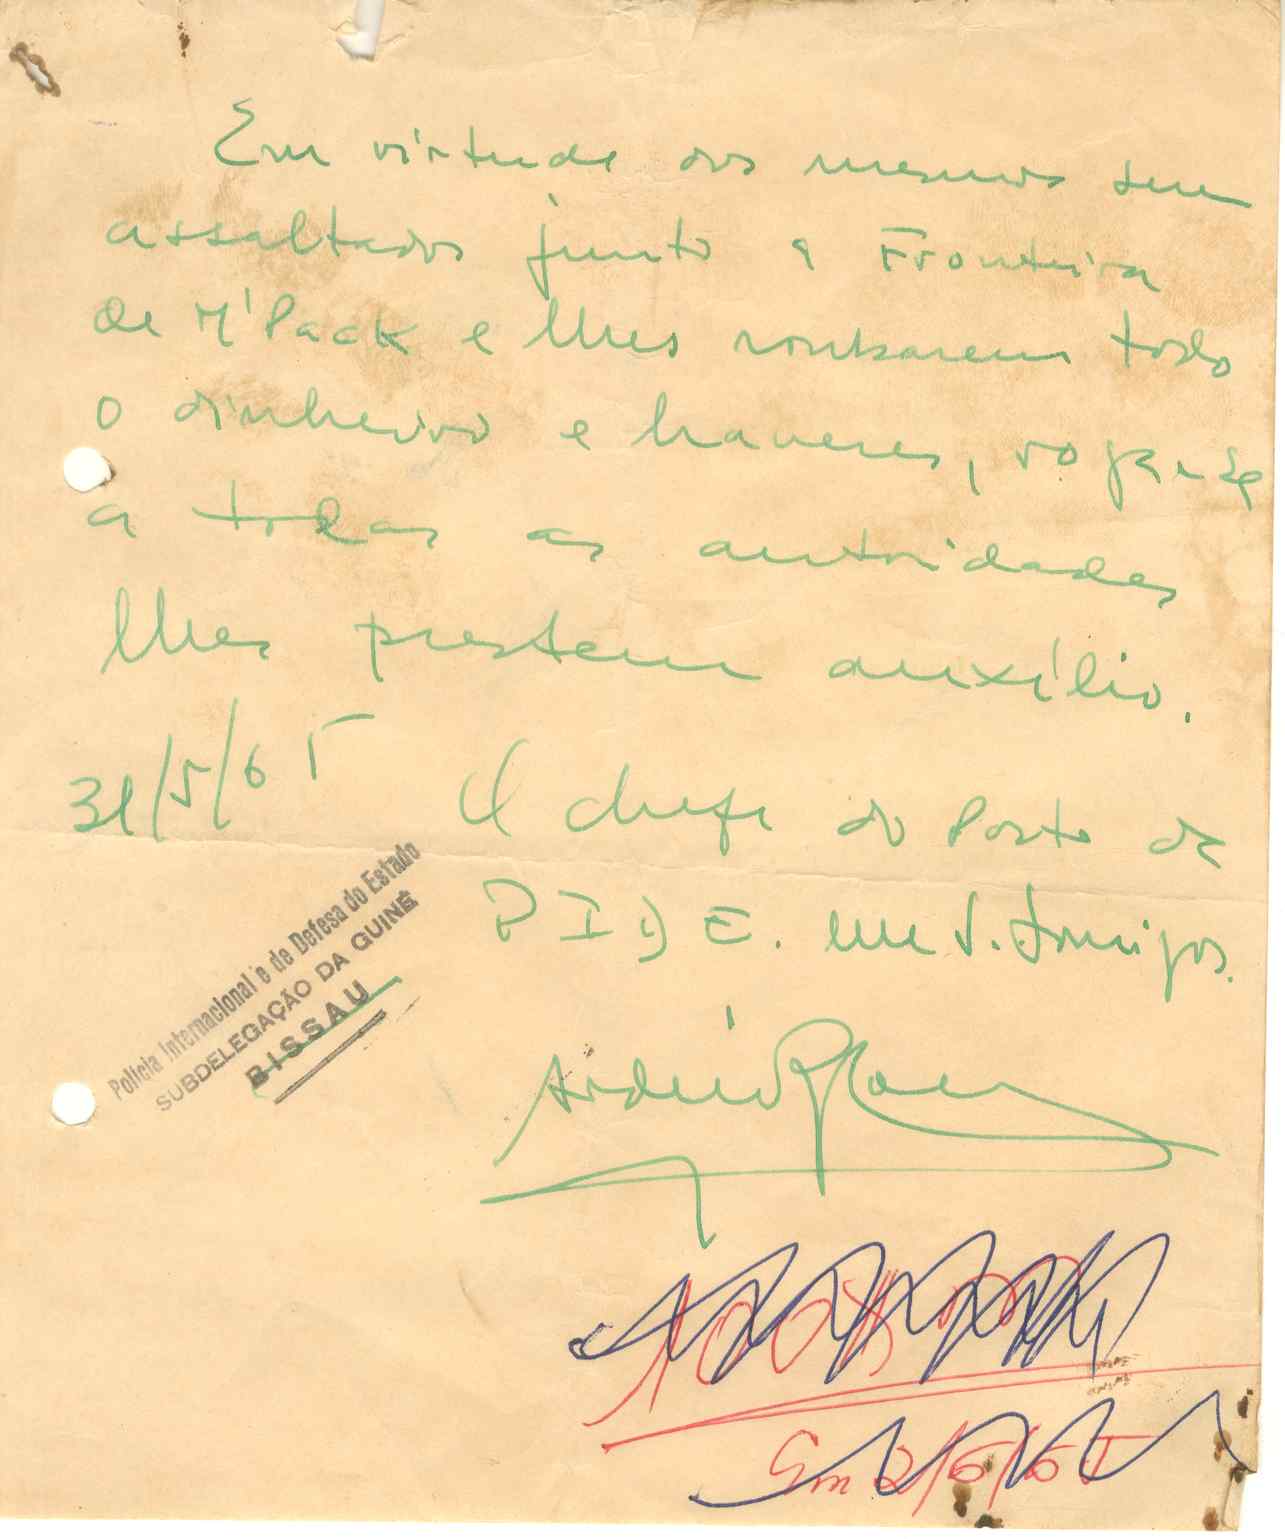 Em virtude dos mesmos sem
assaltados junto a Fronteira
de M'Pack e lhes roubarem todo
o dinheiro e haveres, roga-se
a todas as autoridades
lhes prestem auxílio.
31/5/65 O chefe do Posto da
PIDE. em S. Domigos.
Polícia Internacional e de Defesa do Estado
SUBDELEGAÇÃO DA GUINÉ
BISSAU
Em 2/6/65